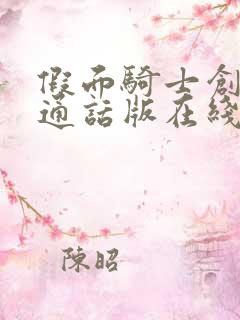 假面騎士創
通話版在綫
陳昭